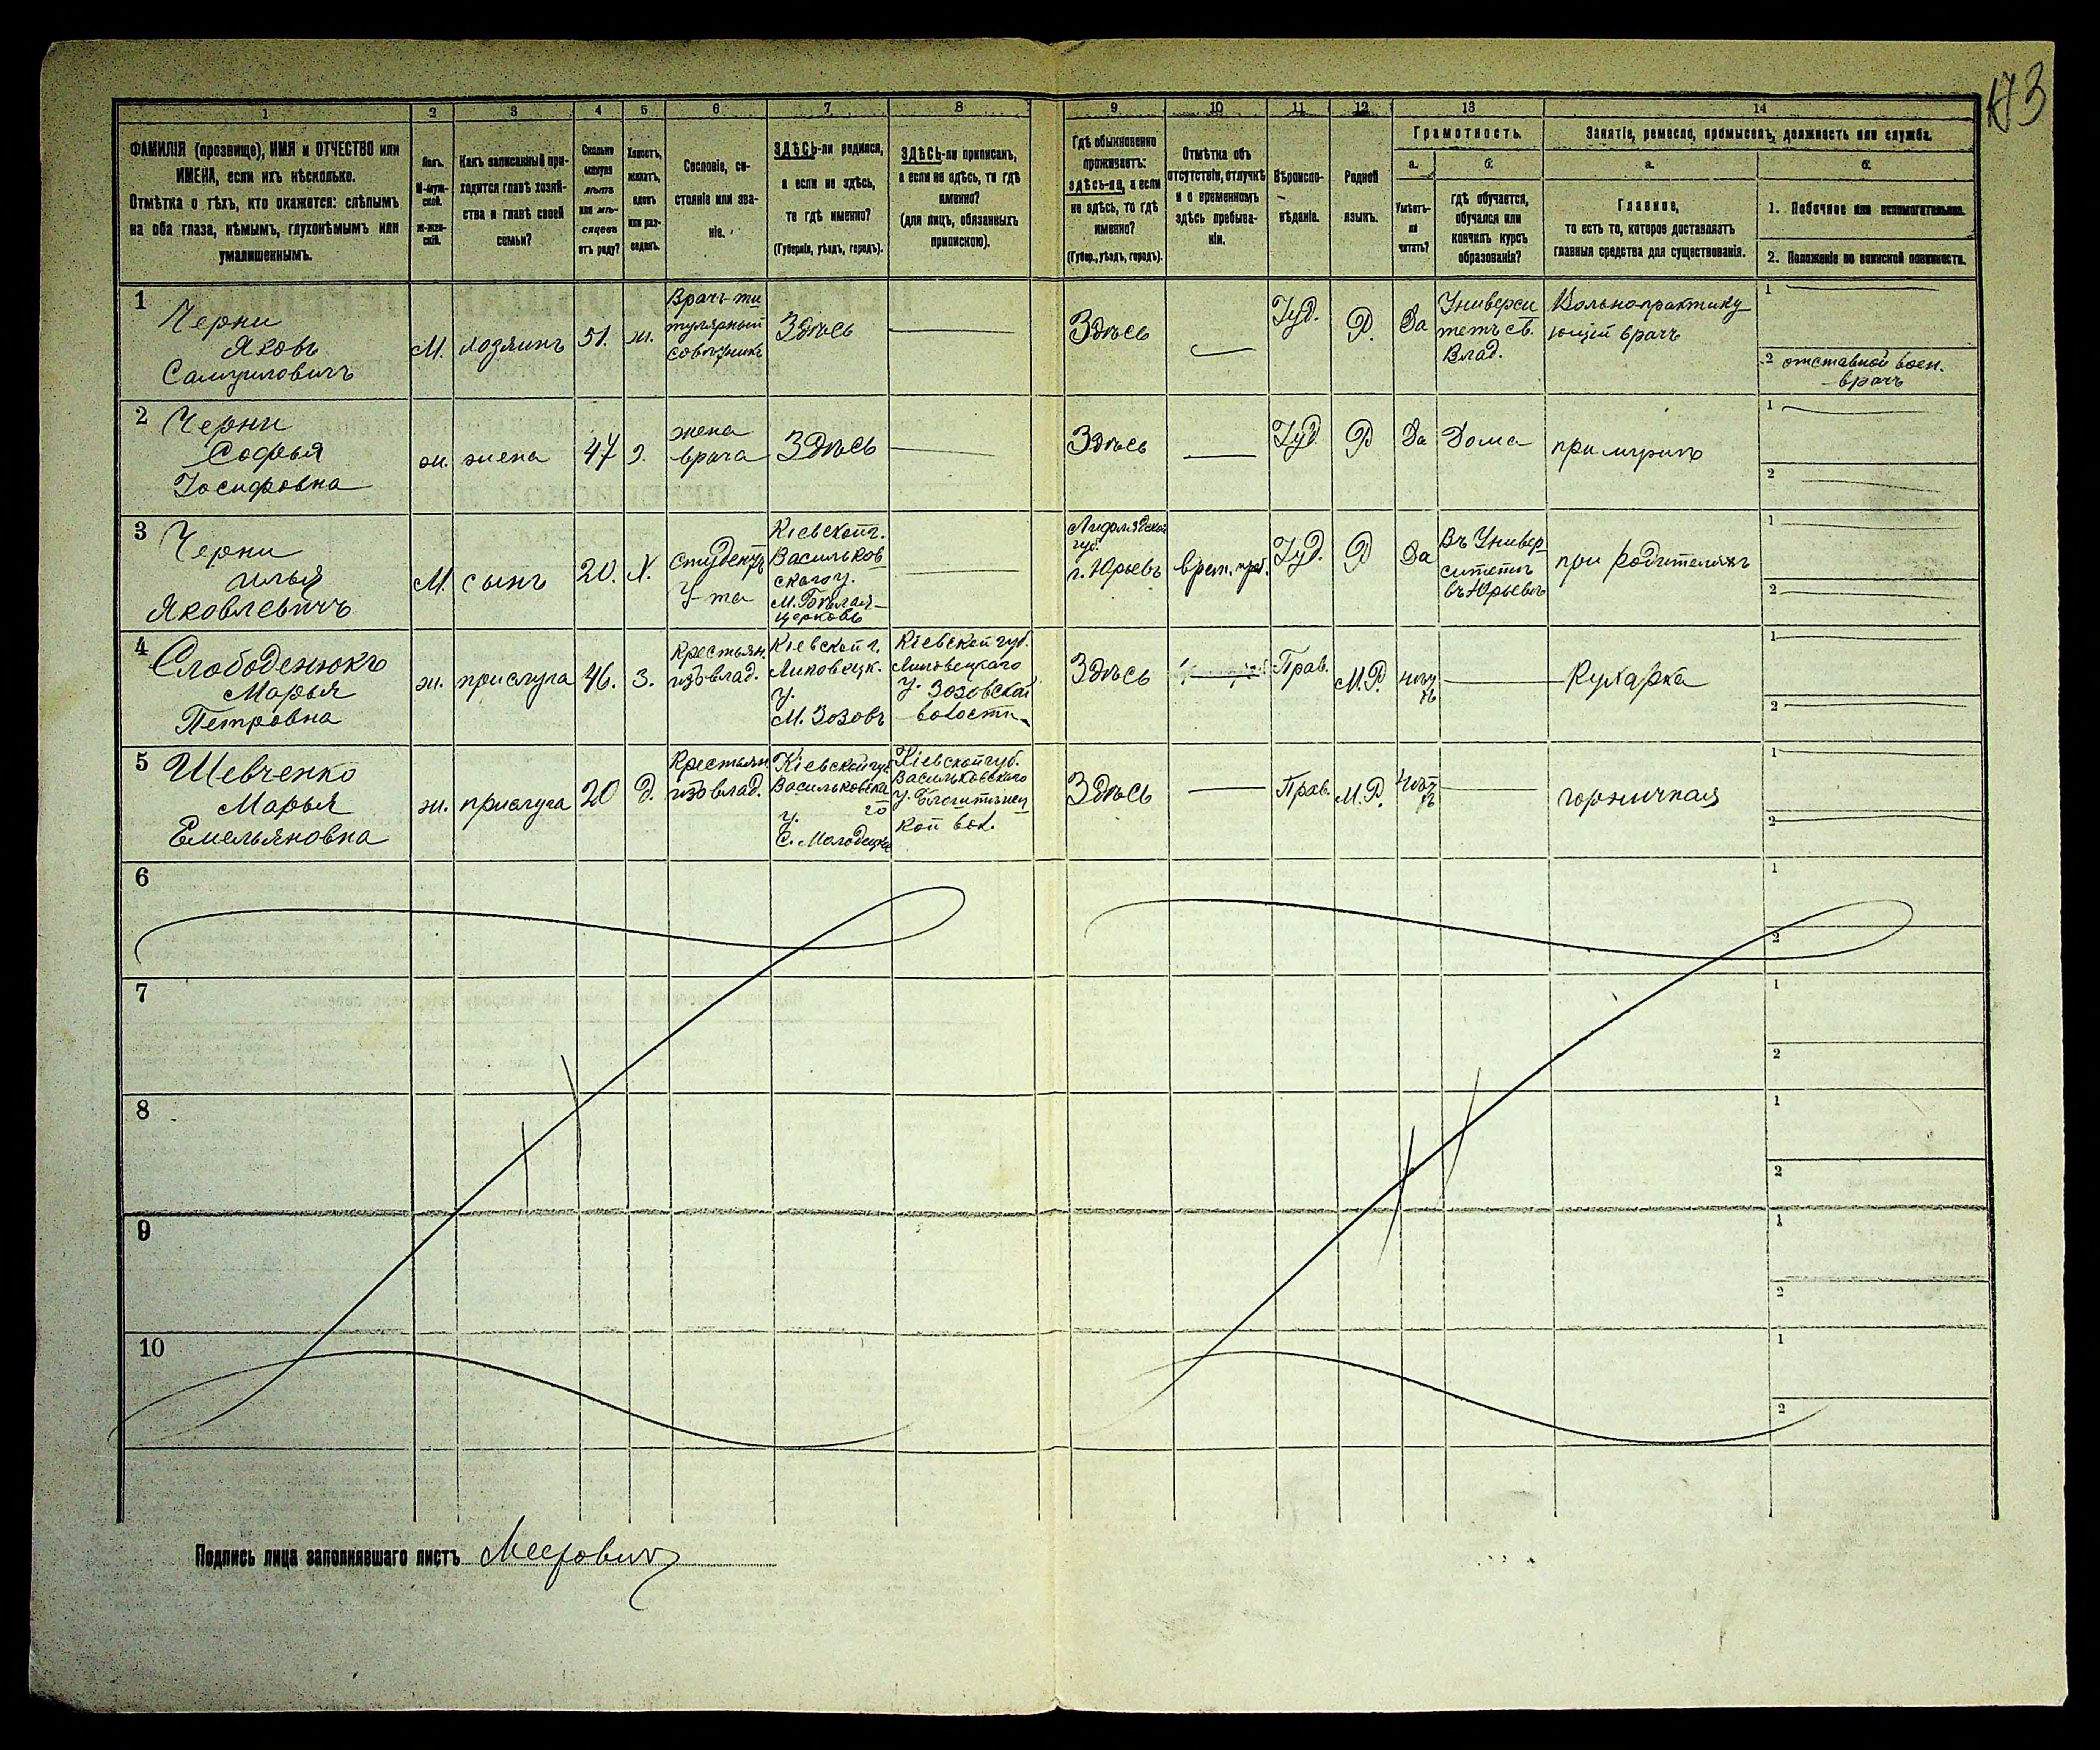 173
1 2 3 4 5 6 7 8 9 10 11 12 13 14
ФАМИЛІЯ (прозвище), ИМЯ и ОТЧЕСТВО или
ИМЕНА, если ихъ нѣсколько.
Отмѣтка о тѣхъ, кто окажется: слѣпымъ
на оба глаза, нѣмымъ, глухонѣмымъ или
умалишеннымъ.
Полъ.
М-муж-
ской.
ж-жен-
скій.
Какъ записанный при-
ходится главѣ хозяй-
ства и главѣ своей
семьи?
Сколько
минуло
лѣтъ
или мѣ-
сяцевъ
отъ роду?
Холостъ,
женатъ,
вдовъ
или раз-
веденъ.
Сословіе, со-
стояніе или зва-
ніе.
ЗДѢСЬ-ли родился,
а если не здѣсь,
то гдѣ именно?
(Губернія, уѣздъ, городъ).
ЗДѢСЬ-ли приписанъ,
а если не здѣсь, то гдѣ
именно?
(для лицъ, обязанныхъ
припискою).
Гдѣ обыкновенно
проживаетъ:
здѣсь-ли, а если
не здѣсь, то гдѣ
именно?
(Губер., уѣздъ, городъ).
Отмѣтка объ
отсутствіи, отлучкѣ
и о временномъ
здѣсь пребыва-
ніи.
Вѣроиспо-
вѣданіе.
Родной
языкъ.
Грамотность.
а.
Умѣетъ-
ли
читать?
б.
гдѣ обучается,
обучался или
кончилъ курсъ
образованія?
Занятіе, ремесло, промыселъ, должность или служба.
а.
Главное,
то есть то, которое доставляетъ
главныя средства для существованія.
б.
1. Побочное или вспомогательное.
2. Положеніе по воинской повинности.
1
Черни
Яковъ
Самуиловичъ
М.
хозяинъ
51.
ж.
Врачъ-ти
тулярный
совѣтникъ
Здѣсь
Здѣсь
Іуд.
Р.
Да
Универси
тетъ св.
Влад.
Вольнопрактику
ющій врачъ
1
2 отставной воен.
врачъ
2
Черни
Софья
Іосифовна
ж.
жена
47
з.
жена
врача
Здѣсь
Здѣсь
Іуд.
Р
Да
Дома
при мужѣ
1
2
3
Черни
Илья
Яковлевичъ
М.
сынъ
20.
Х.
Студентъ
У-та
Кіевской г.
Васильков
скаго у.
М. Бѣлая-
Церковь
Лифляндской
губ.
г. Юрьевъ
врем. преб.
Іуд.
Р
Да
Въ Универ
ситетѣ
въ Юрьевѣ
при родителяхъ
1
2
4
Слободенюкъ
Марья
Петровна
ж.
прислуга
46.
З.
Крестьян.
изъ влад.
Кіевской г.
Липовецк.
у.
М. Зозовъ
Кіевской губ.
Липовецкаго
у. Зозовской
волости
Здѣсь
Прав.
М.Р.
нѣтъ
Кухарка
1
2
5
Шевченко
Марья
Емельяновна
ж.
прислуга
20
д.
Крестьян
изъ влад.
Кіевской губ
Васильковска
го
у.
С. Молодецкое
Кіевской губ.
Васильковскаго
у.
кой вол.
Здѣсь
Прав.
М.Р.
нѣтъ
горничная
1
2
6
1
2
7
1
2
8
1
2
9
1
2
10
1
2
Подпись лица заполнявшаго листъ Меерович